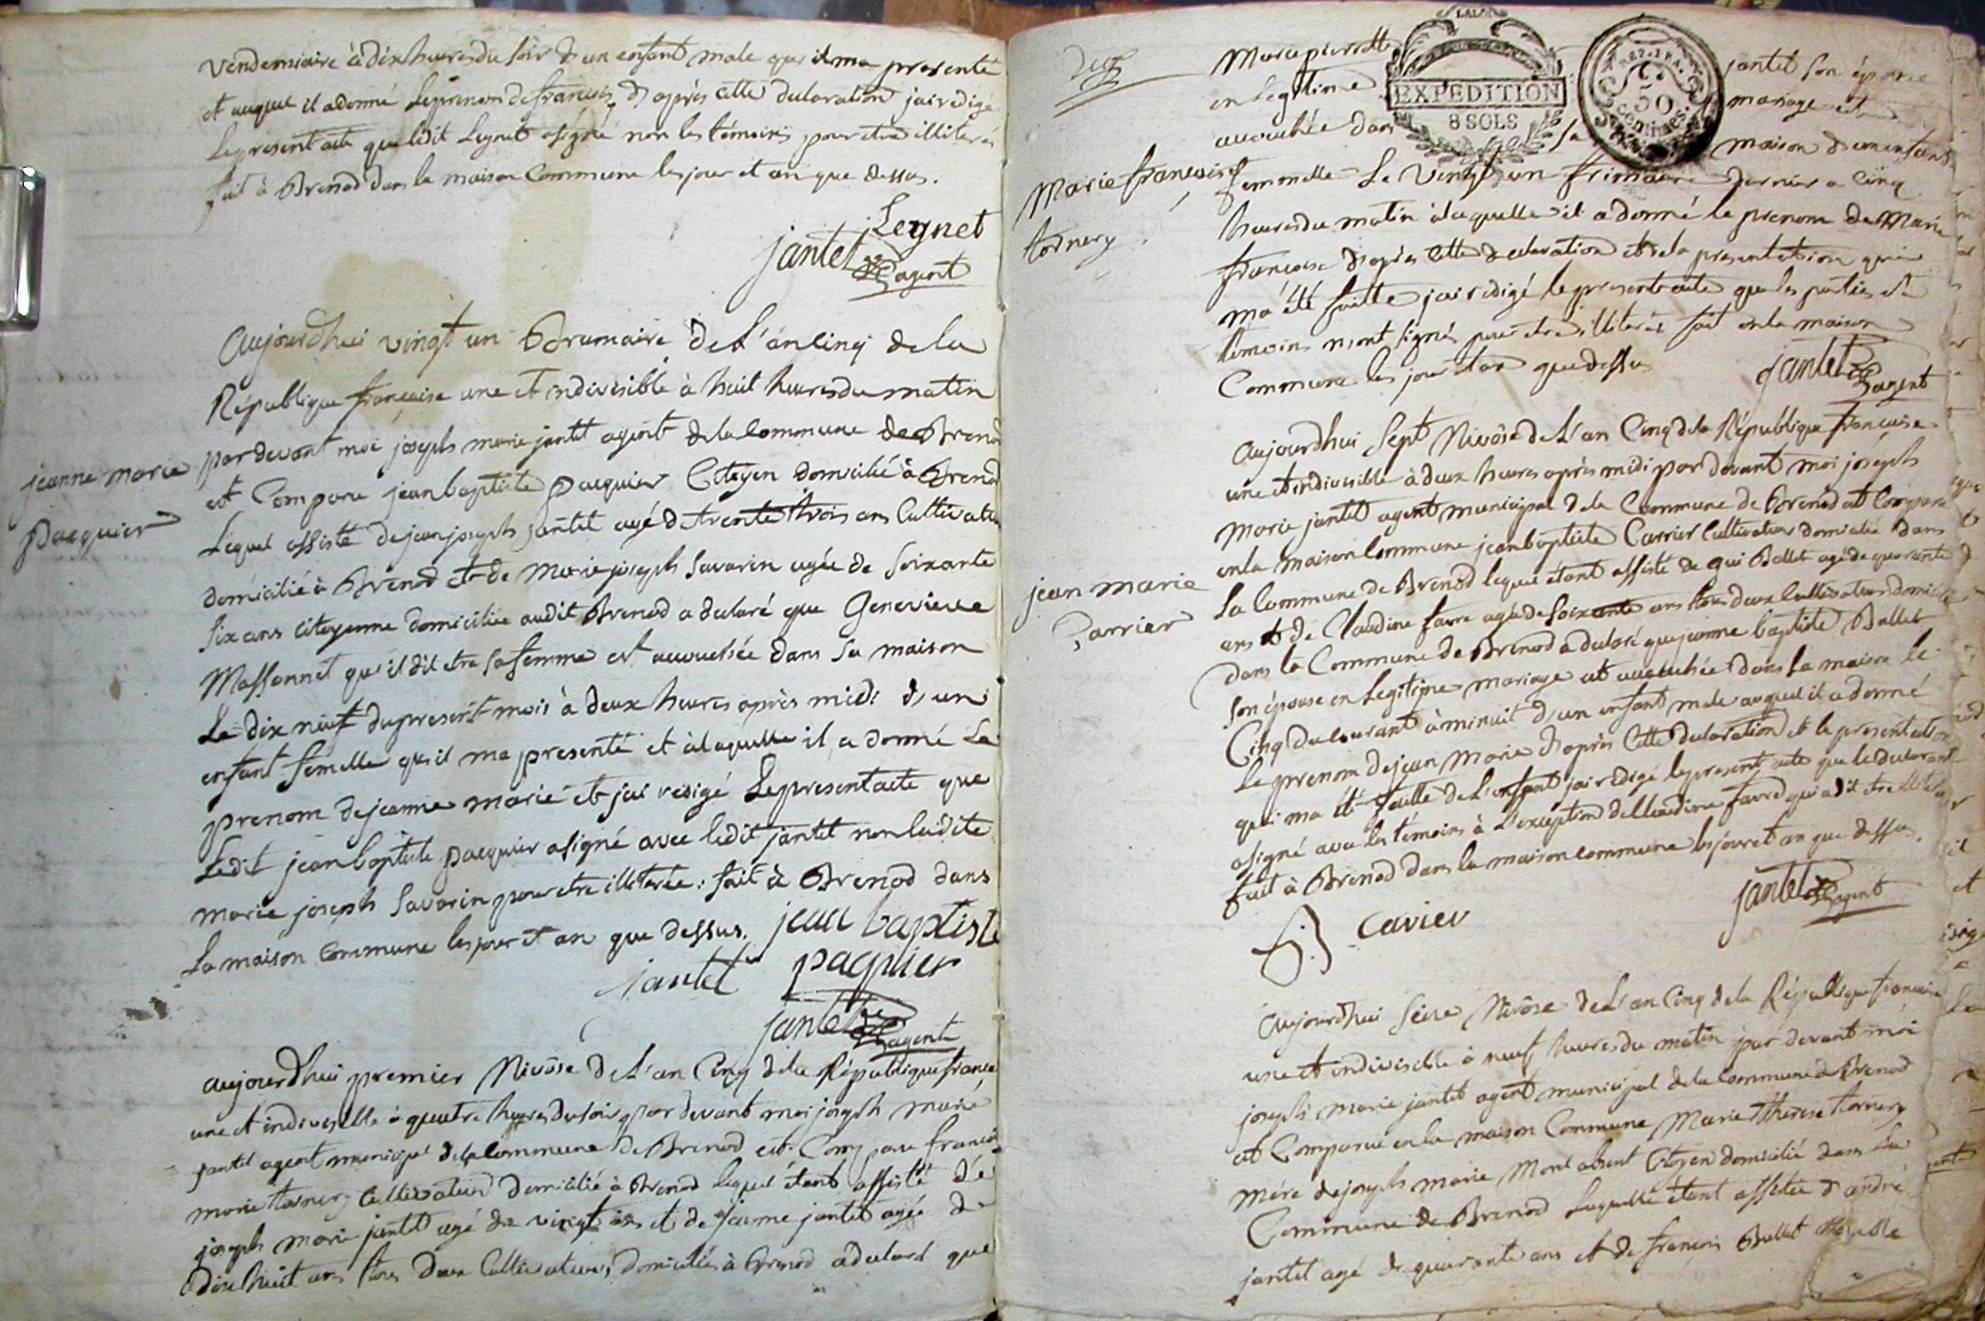 vendemiaire à dix heures du soir d'un enfant male que il ma presenté
et auquel il a donné le prenom de françois d'après cette declaration jai redigé
le present acte que ledit Leynet a signé non les témoins pour etre illiterés
fait à Brenod dans la maison Commune les jour et an que dessus.
Leynet
jantet
agent
Aujourdhui vingt un Brumaire de L'an cinq de la
République française une et indivisible à huit heures du matin
par devant moi joseph marie jantet agent de la Commune de Brenod
jeanne marie
pacquier
est Comparu jean baptiste pacquier Citoyen domicilié à Brenod
Lequel assisté de jean joseph jantet agé de trente trois ans Cultivateur
domicilié à Brenod et de Marie joseph Savarin agée de soixante
six ans citoyenne domiciliée audit Brenod a declaré que Genevieve
Massonnet qu'il dit etre sa femme est accouchée dans sa maison
Le dix neuf du present mois à deux heures après midi d'un
enfant femelle qu'il ma presenté et à laquelle il a donné Le
prenom de jeanne marie et jai redigé Le present acte que
Ledit jean baptiste pacquier a signé avec ledit jantet non ladite
marie joseph Savarin pour etre illiterée: fait à Brenod dans
La maison Commune les jour et an que dessus.
jean baptiste
jantet paquier
jantet
agent
aujourdhui premier Nivôse de L'an Cinq de la République française
une et indivisible à quatre heures du soir par devant moi joseph marie
jantet agent municipal de la Commune de Brenod est Comparu françois
marie tornery Cultivateur domicilié à Brenod Lequel étant assisté de
joseph marie jantet agé de vingt ans et de jaime jantet agée de
dix huit ans tous deux Cultivateurs domiciliés à Brenod a declaré que
Marie pierrette jantet son épouse
en Legitime mariage est
accouchée dans sa maison d'un enfant
EXPEDITION
8 SOLS
50
Centimes
Marie françoise
tornery
femmelle Le Vingt un frimaire dernier a cinq
heures du matin à laquelle il a donné le prenom de Marie
françoise d'après cette declaration et de la presentation qui
ma été faitte jai redigé le present acte que les parties et
temoins n'ont signés pour etre illiterés fait en la maison
Commune les jour et an que dessus
jantet
agent
aujourdhui Sept Nivôse de L'an Cinq de la République française
une et indivisible à deux heures après midi par devant moi joseph
marie jantet agent municipal de la Commune de Brenod est Comparu
en la maison Commune jean baptiste Carrier Cultivateur domicilié dans
jean marie
Carrier
la Commune de Brenod lequel étant assisté de gui Ballet agé de quarante
ans et de Claudine favre agée de soixante ans tous deux Cultivateurs domiciliés
dans la Commune de Brenod a declaré que jeanne baptiste Ballet
son épouse en Legitime mariage est accouchée dans sa maison le
Cinq du courant à minuit d'un enfant male auquel il a donné
Le prenom de jean Marie d'après Cette declaration et la presentation
qui ma été faitte de L'enfant jai redigé le present acte que le declarant
a signé avec les témoins à L'exception de Claudine favre qui a dit etre illiterée
fait à Brenod dans la maison commune les jour et an que dessus.
carier
jantet
agent
Aujourdhui seize Nivôse de L'an Cinq de la République française
une et indivisible à neuf heures du matin par devant moi
joseph marie jantet agent municipal de la Commune de Brenod
est Comparue en la maison Commune Marie therese tornery
mére de joseph marie Mont absent Citoyen domicilié dans la
Commune de Brenod Laquelle étant assistée d'andré
jantet agé de quarante ans et de françois Ballet